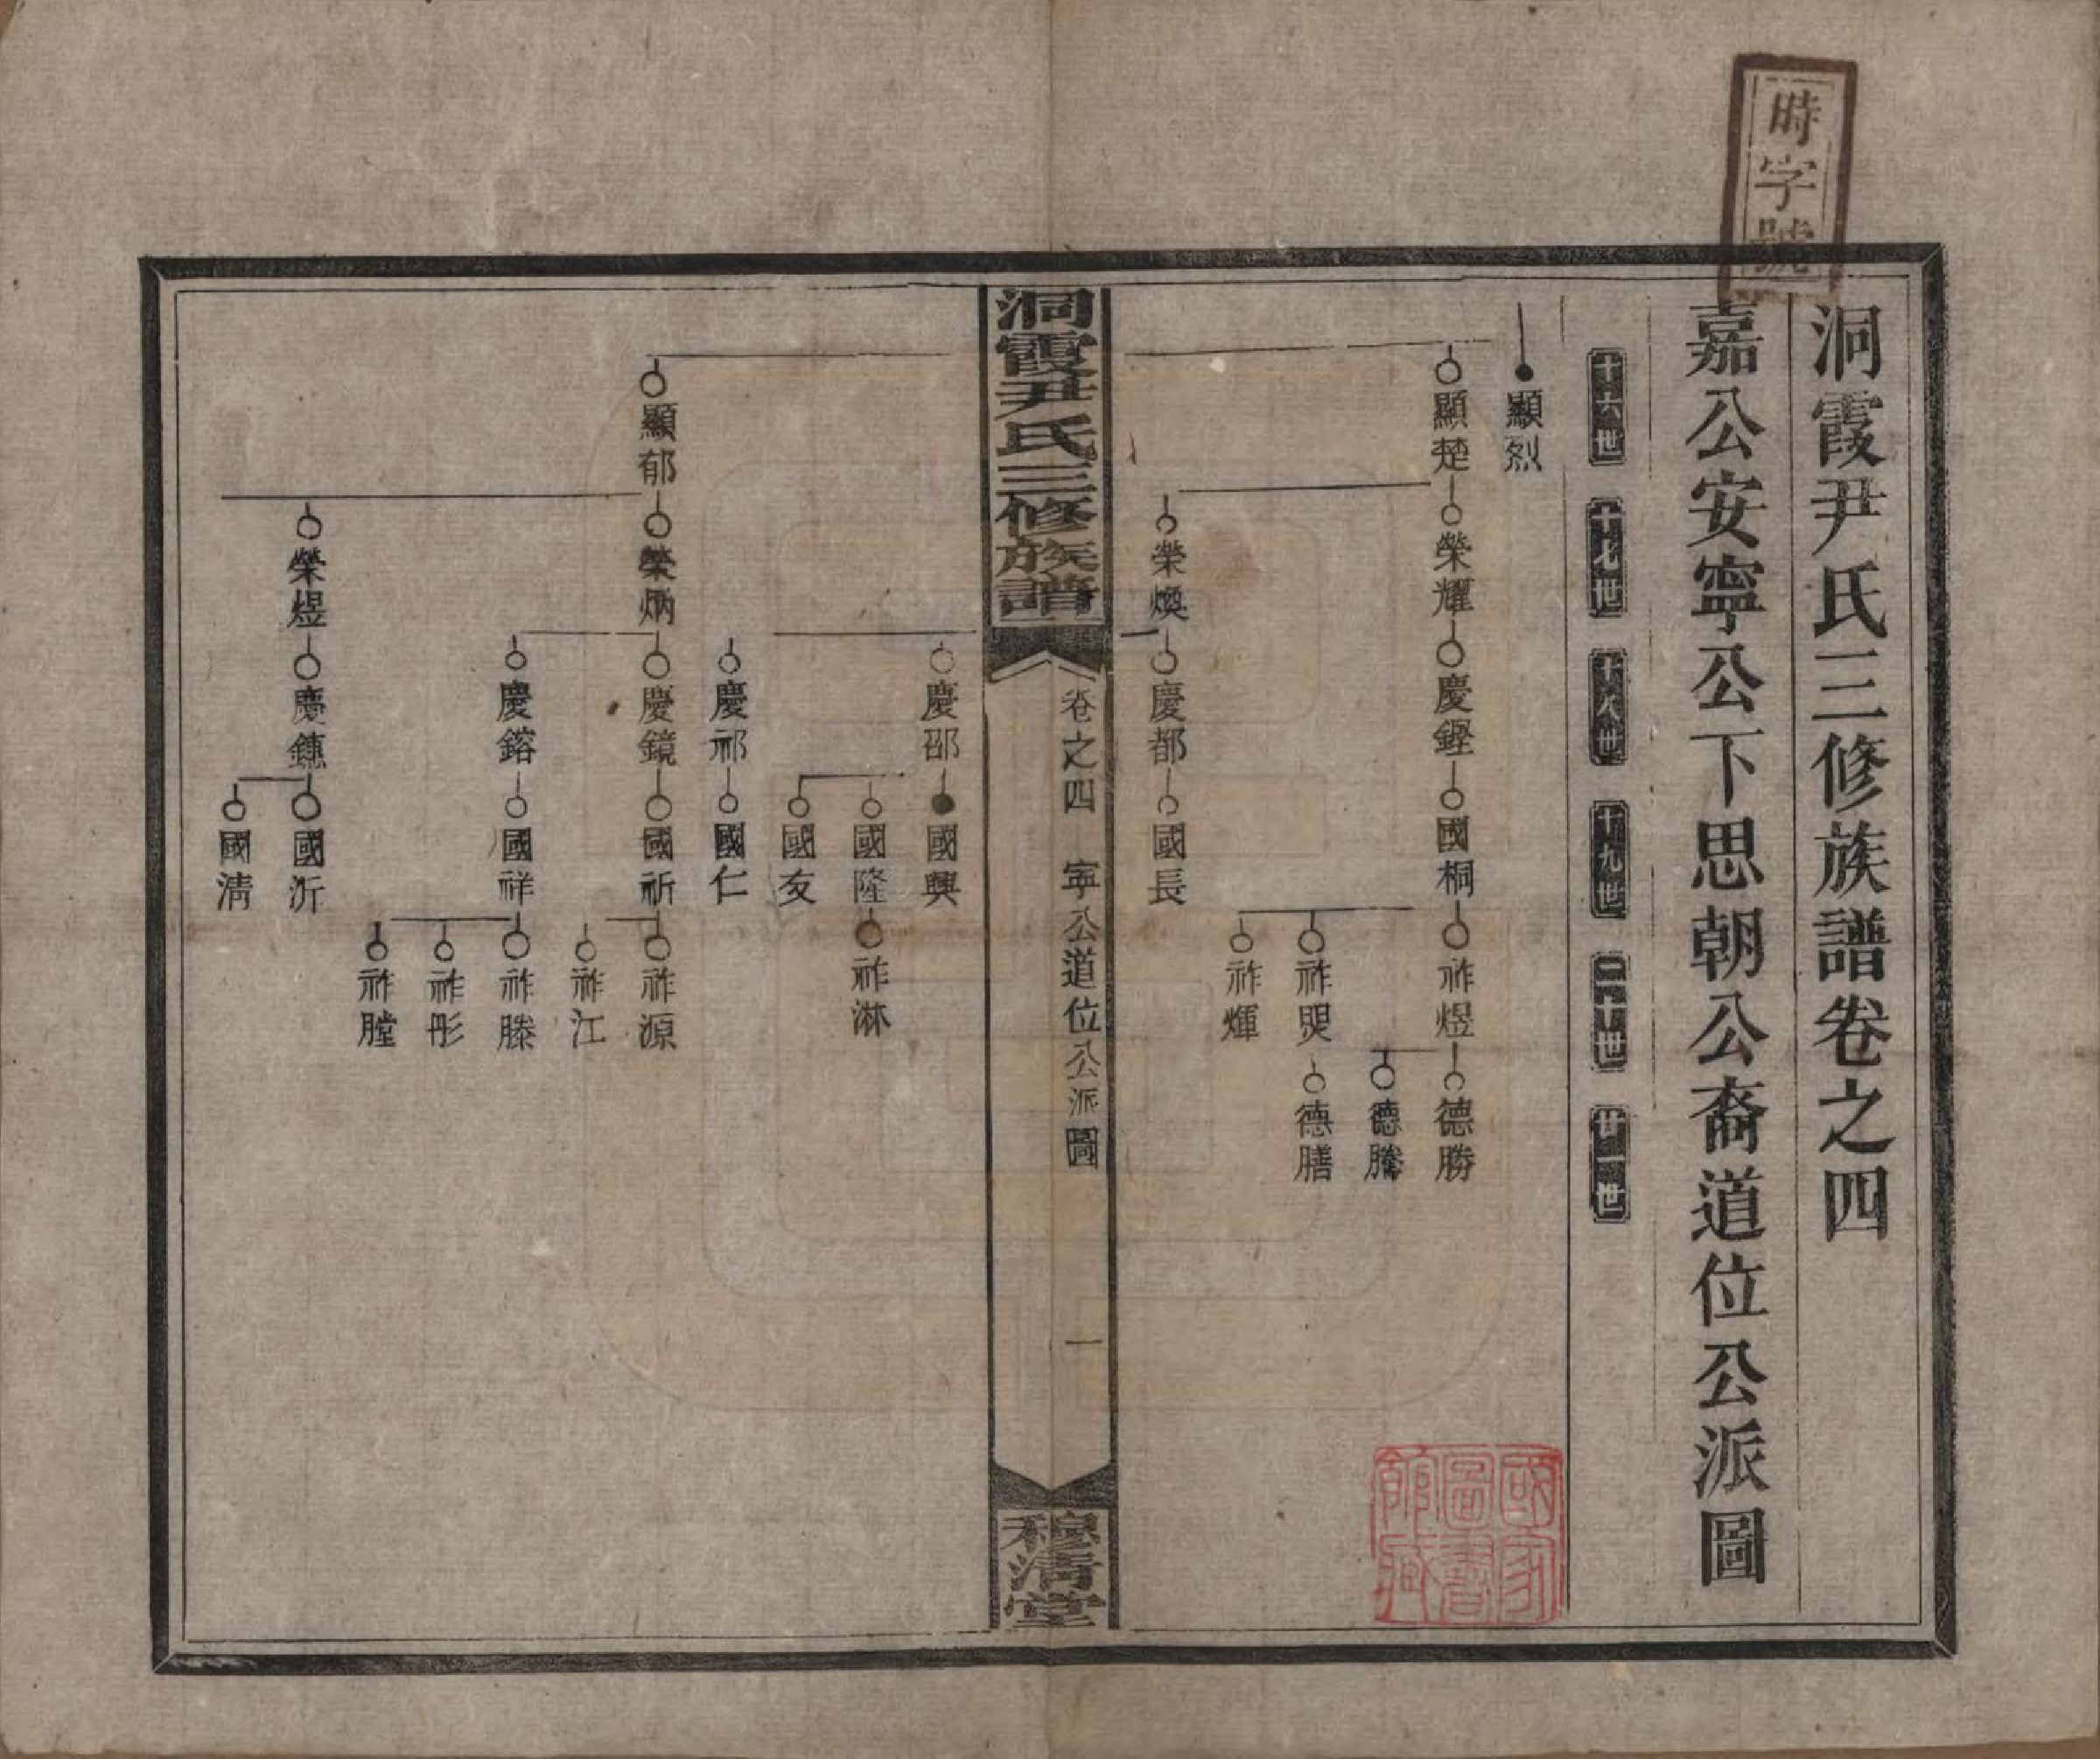 時字號
洞霞尹氏三修族譜卷之四
嘉公安寧公下思朝公裔道位公派圖
十六世 十七世 十八世 十九世 二十世 廿一世
顯烈
顯楚 榮耀 慶鏗 國桐 祚煜 德勝
德騰
祚煚 德膳
祚煇
榮煥 慶都 國長
洞霞尹氏三修族譜
卷之四 寧公道位公派圖 一
穆清堂
慶邵 國興
國隆 祚淋
國友
慶祁 國仁
顯郁 榮炳 慶鏡 國祈 祚源
祚江
慶鎔 國祥 祚滕
祚彤
祚膛
榮煜 慶鐎 國沂
國淸
國家圖書館藏